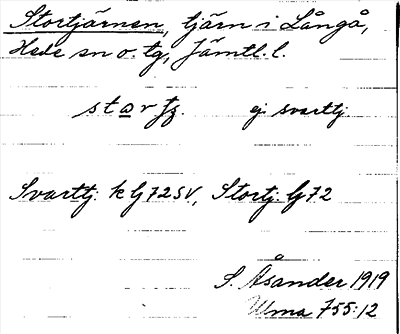 Stortjärnen, tjärn i Långå,
Hede sn o. tg, Jämtl. l.
startj. ej svarttj
Svarttj: k lj 72 SV, Stortj: lj 72
S. Åsander 1919
Uma 755:12